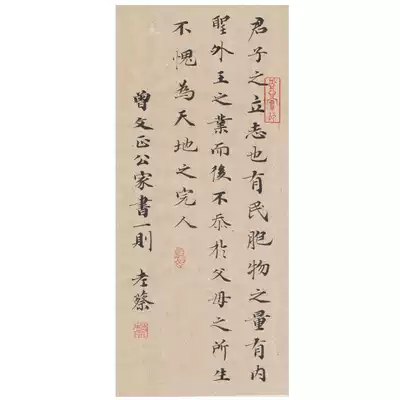 君子之立志也有民胞物之量有内
聖外王之業而後不忝於父母之所生
不愧為天地之完人
曾文正公家書一則 蔡